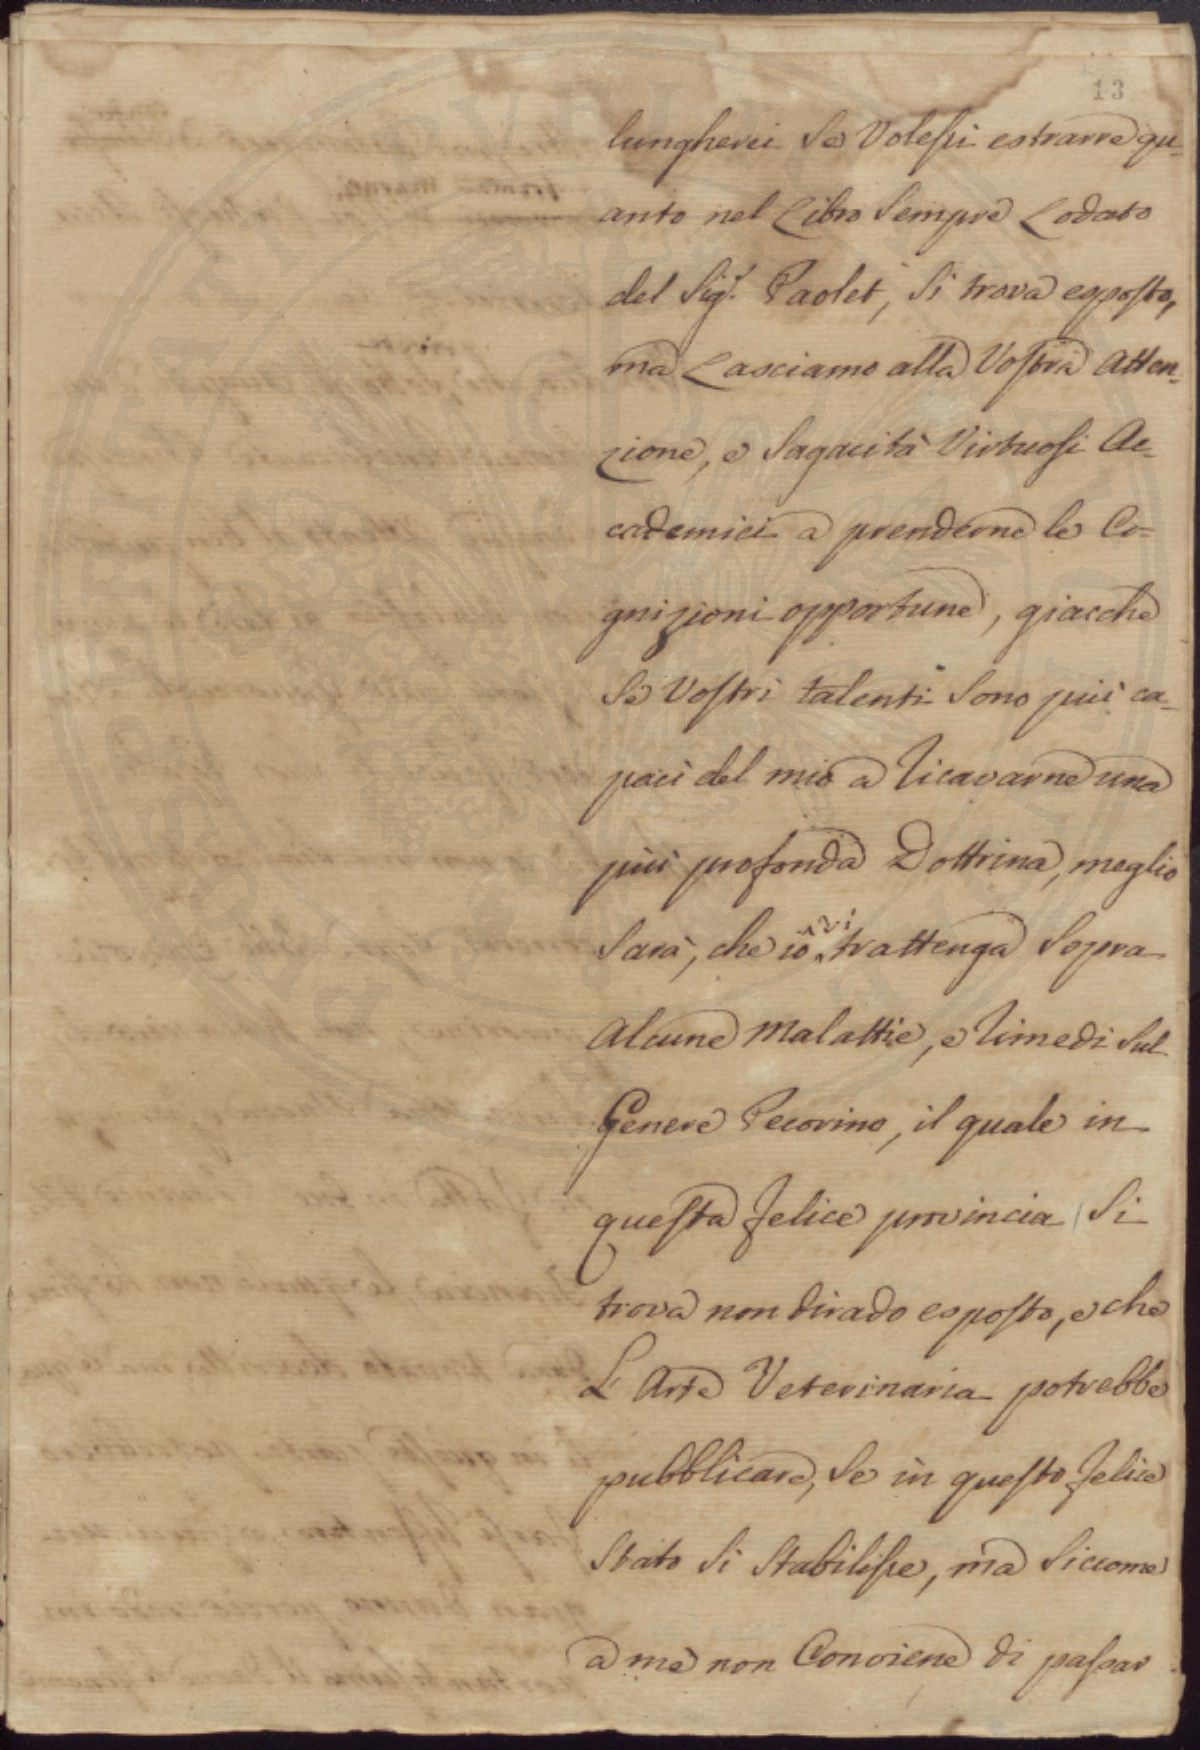 13
lungherei se Volessi estrarre qu-
anto nel Libro sempre Lodato
del Sig.r Paolet, si trova esposto,
ma Lasciamo alla Vostra Atten-
zione, e Sagacità Virtuosi Ac-
cademici a prenderne le Co-
gnizioni opportune, giacche
se Vostri talenti sono più ca-
paci del mio a ricavarne una
più profonda Dottrina, meglio
sarà, che io vi trattenga sopra
Alcune Malattie, e rimedi sul
Genere Pecorino, il quale in
questa felice provincia si
trova non dirado esposto, e che
L'Arte Veterinaria potrebbe
pubblicare, se in questo felice
Stato si stabilisse, ma siccome
a me non Conviene di passar